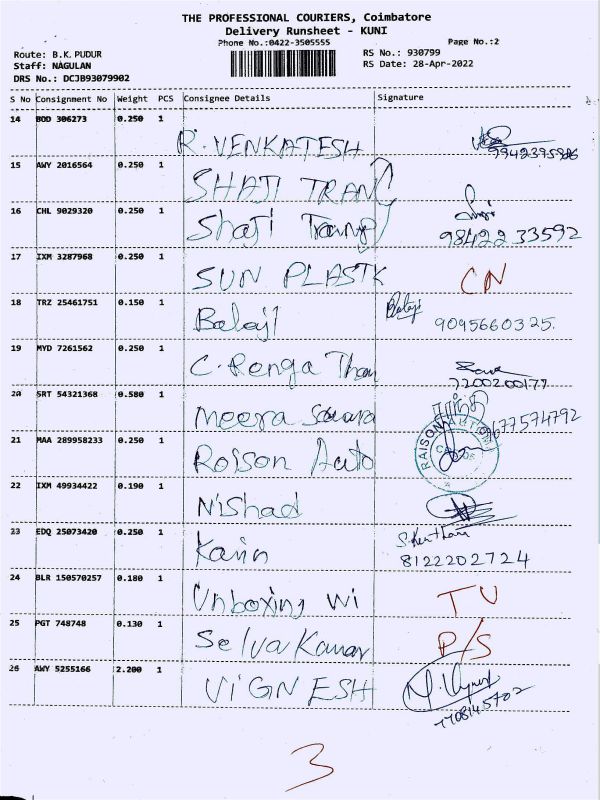 THE PROFESSIONAL COURIERS, Coimbatore
Delivery Runsheet - KUNI
Phone No.:0422-3505555
Page No.:2
Route: B.K.PUDUR
RS No.: 930799
Staff: NAGULAN
RS Date: 28-Apr-2022
DRS No.: DCJB93079902
S No Consignment No Weight PCS Consignee Details Signature
14 BOD 306273 0.250 1
R. VENKATESH
15 AWY 2016564 0.250 1
SHAJI TRAN
16 CHL 9029320 0.250 1
Shaji Trang
98422 33592
17 IXM 3287968 0.250 1
SUN PLASTK CN
18 TRZ 25461751 0.150 1
Balaji
9095660325.
19 MYD 7261562 0.250 1
C. Renga Than
7200200177
20 SRT 54321368 0.580 1
Meera
9677574792
21 MAA 289958233 0.250 1
Roison Auto
RAISON
22 IXM 49934422 0.190 1
Nishad
23 EDQ 25073420 0.250 1
8122202724
24 BLR 150570257 0.180 1
Unboxing Wi TU
25 PGT 748748 0.130 1
Selva Kumar P/S
26 AWY 5255166 2.200 1
VIGNESH
3